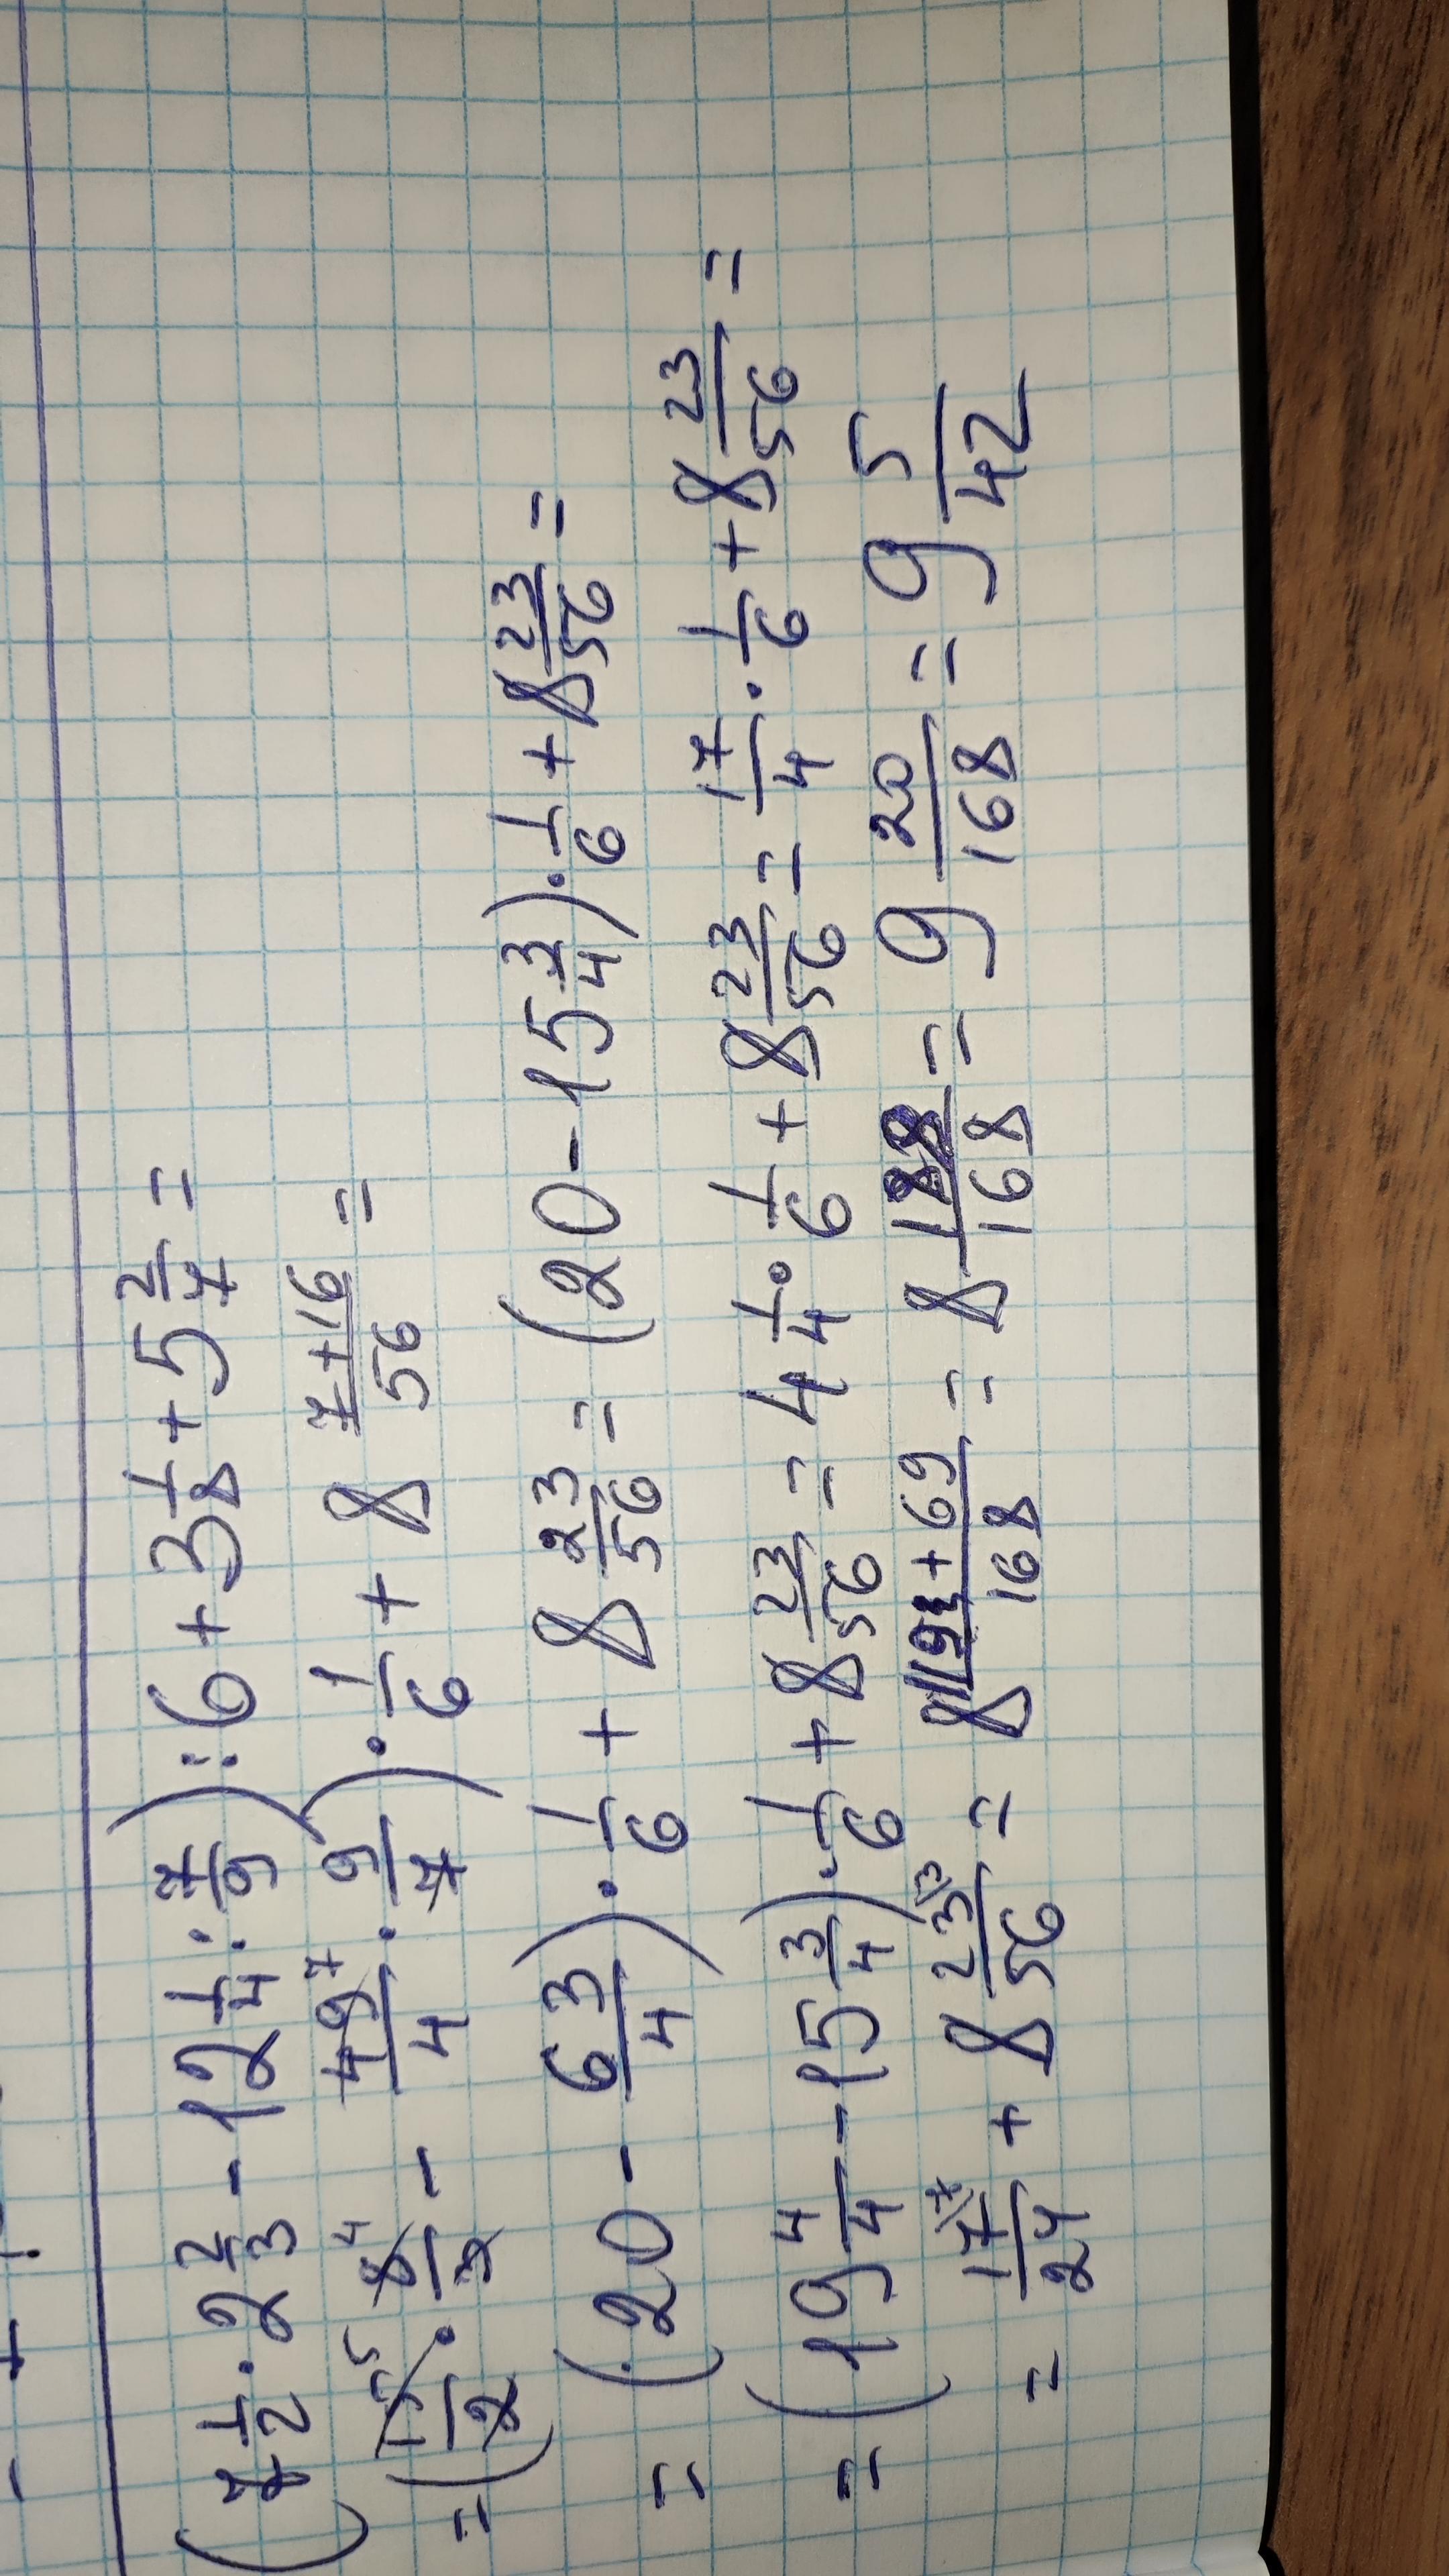 (7 1/2 · 2 2/3 - 12 1/4 : 7/9) : 6 + 3 1/8 + 5 2/7 =
= (15/2 ⁵ · 8/3 ⁴ - 49/4 ⁷ · 9/7) · 1/6 + 8 7+16/56 =
= (20 - 63/4) · 1/6 + 8 23/56 = (20 - 15 3/4) · 1/6 + 8 23/56 =
= (19 4/4 - 15 3/4) · 1/6 + 8 23/56 = 4 1/4 · 1/6 + 8 23/56 = 17/4 · 1/6 + 8 23/56 =
= 17/24 ⁷ + 8 23/56 ³ = 8 119+69/168 = 8 188/168 = 9 20/168 = 9 5/42